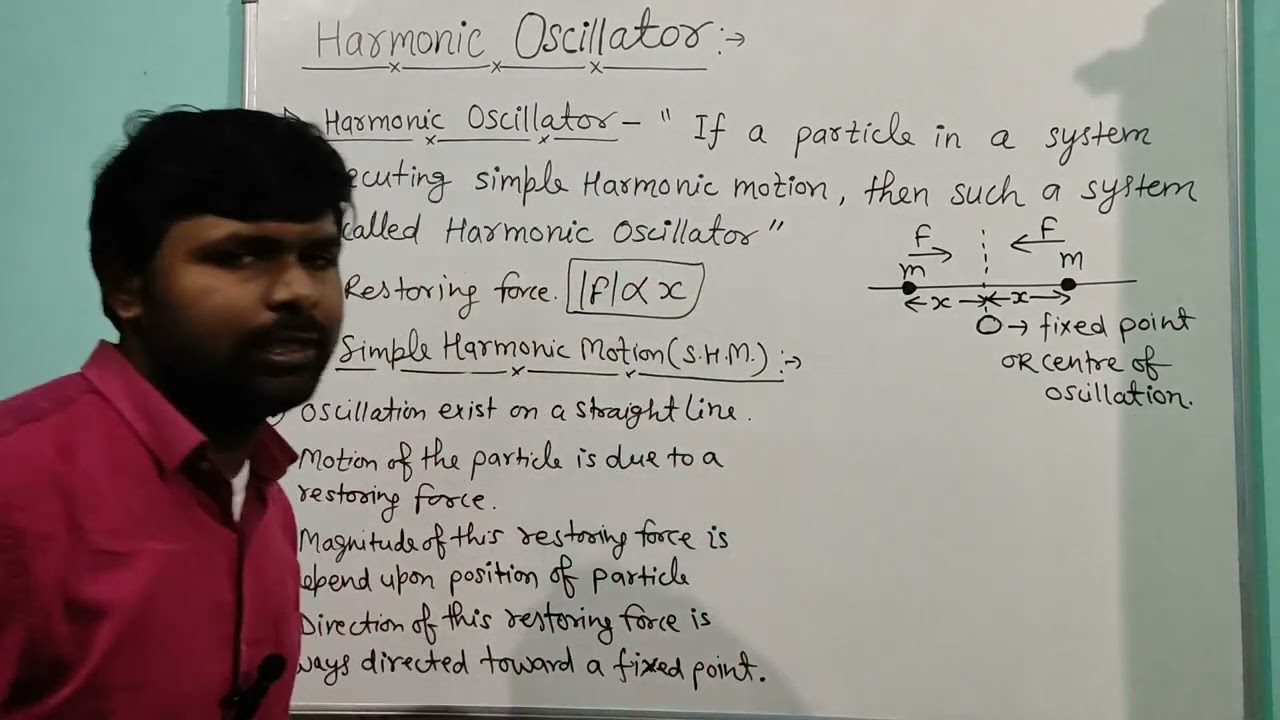 Harmonic Oscillator :→
Harmonic Oscillator - " If a particle in a system
ecuting simple Harmonic motion, then such a system
called Harmonic Oscillator"
Restoring force. |f| ∝ x
f f
m m
x x
O → fixed point
OR centre of
oscillation.
Simple Harmonic Motion (S.H.M.) :→
Oscillation exist on a straight line.
Motion of the particle is due to a
restoring force.
Magnitude of this restoring force is
epend upon position of particle
Direction of this restoring force is
ways directed toward a fixed point.